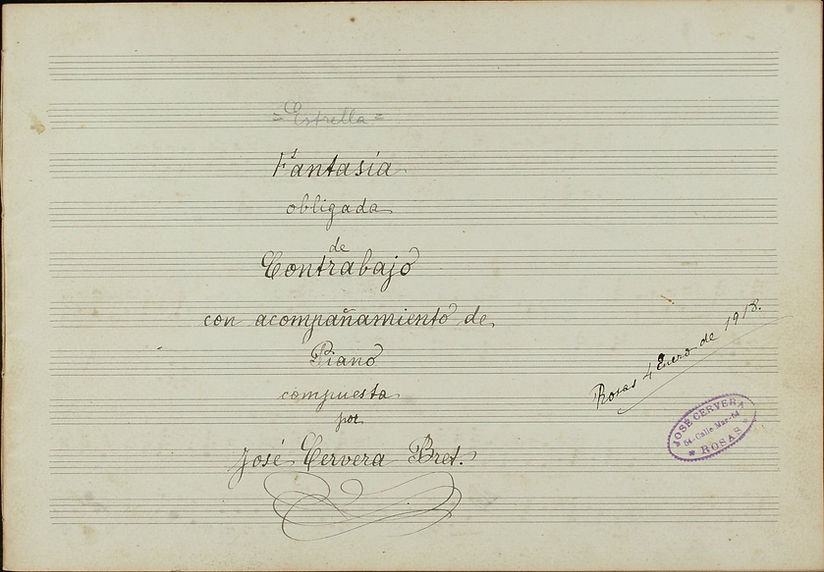 =Estrella=
Fantasía
obligada
de
Contrabajo
con acompañamiento de
Piano
compuesta
por
José Cervera Bret.
Rosas 4 Enero de 1918.
JOSÉ CERVERA
54 Calle Mar-54
* ROSAS *